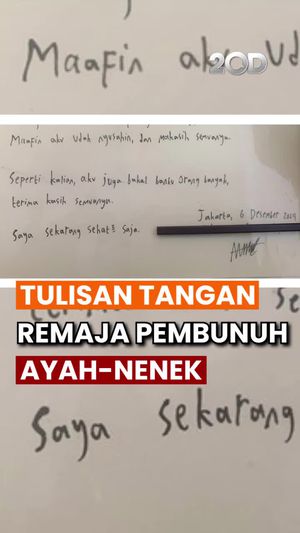 Maafin aku Ud
20D
Maafin aku udah nyusahin, dan makasih semuanya.
Seperti kalian, aku juga bakal bantu orang banyak,
terima kasih semuanya.
Jakarta, 6 Desember
Saya sekarang sehat² saja.
TULISAN TANGAN
REMAJA PEMBUNUH
AYAH-NENEK
Saya sekarang